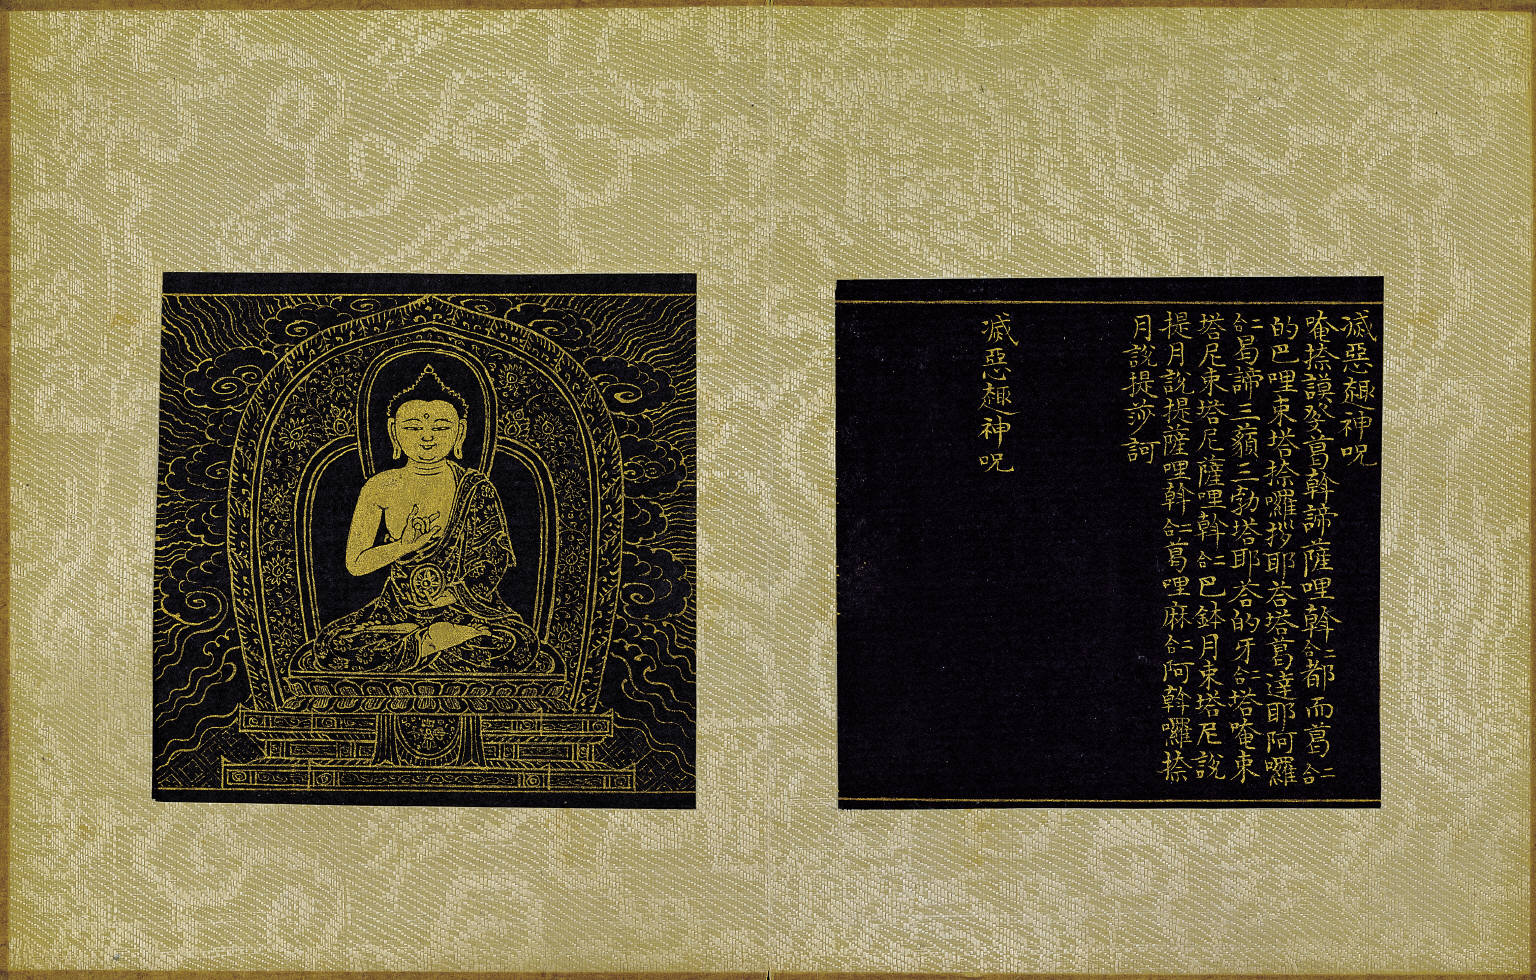 滅惡趣神呪
唵捺謨癹葛斡諦薩哩斡二合都而葛二合
的巴哩束塔捺囉拶耶荅塔葛達耶阿囉
二合曷諦三藐三勃塔耶荅的牙二合塔唵束
塔尼束塔尼薩哩斡二合巴鉢月束塔尼說
提月說提薩哩斡二合葛哩麻二合阿斡囉捺
月說提莎訶
滅惡趣神呪